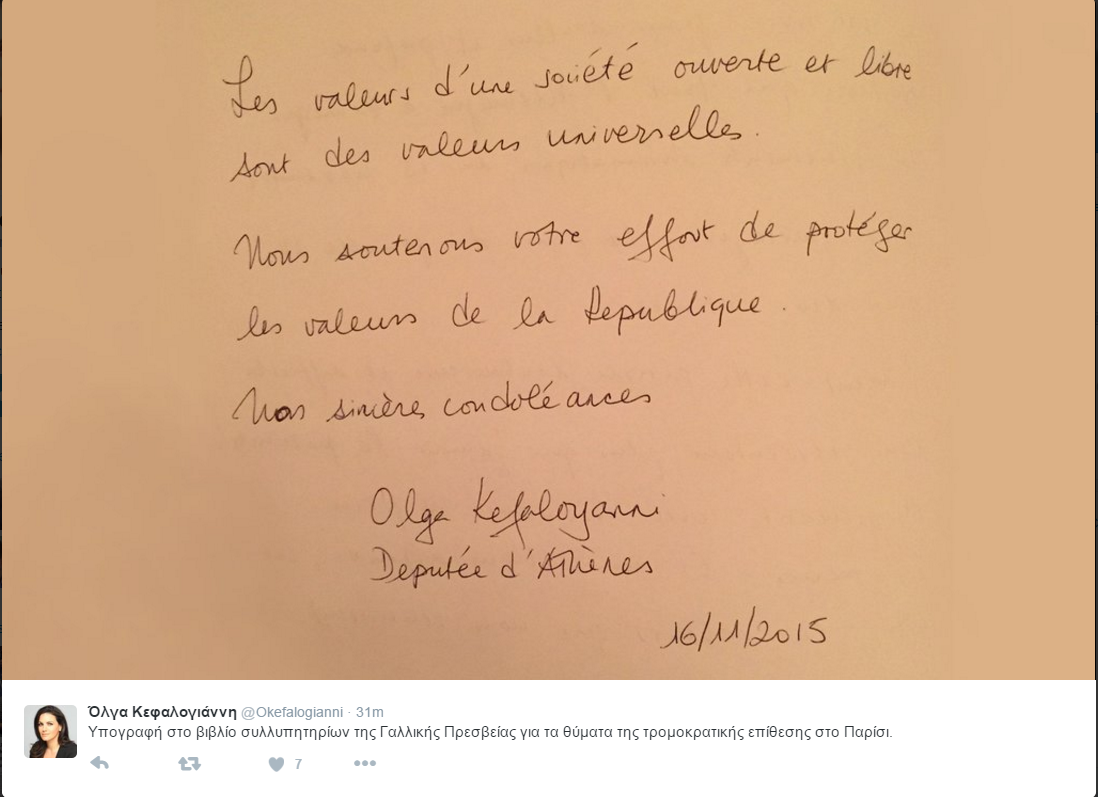 Les valeurs d'une société ouverte et libre
sont des valeurs universelles.
Nous soutenons votre effort de protéger
les valeurs de la Republique.
Nos sincères condoléances
Olga Kefaloyanni
Deputée d'Athènes
16/11/2015
Όλγα Κεφαλογιάννη @Okefalogianni · 31m
Υπογραφή στο βιβλίο συλλυπητηρίων της Γαλλικής Πρεσβείας για τα θύματα της τρομοκρατικής επίθεσης στο Παρίσι.
7